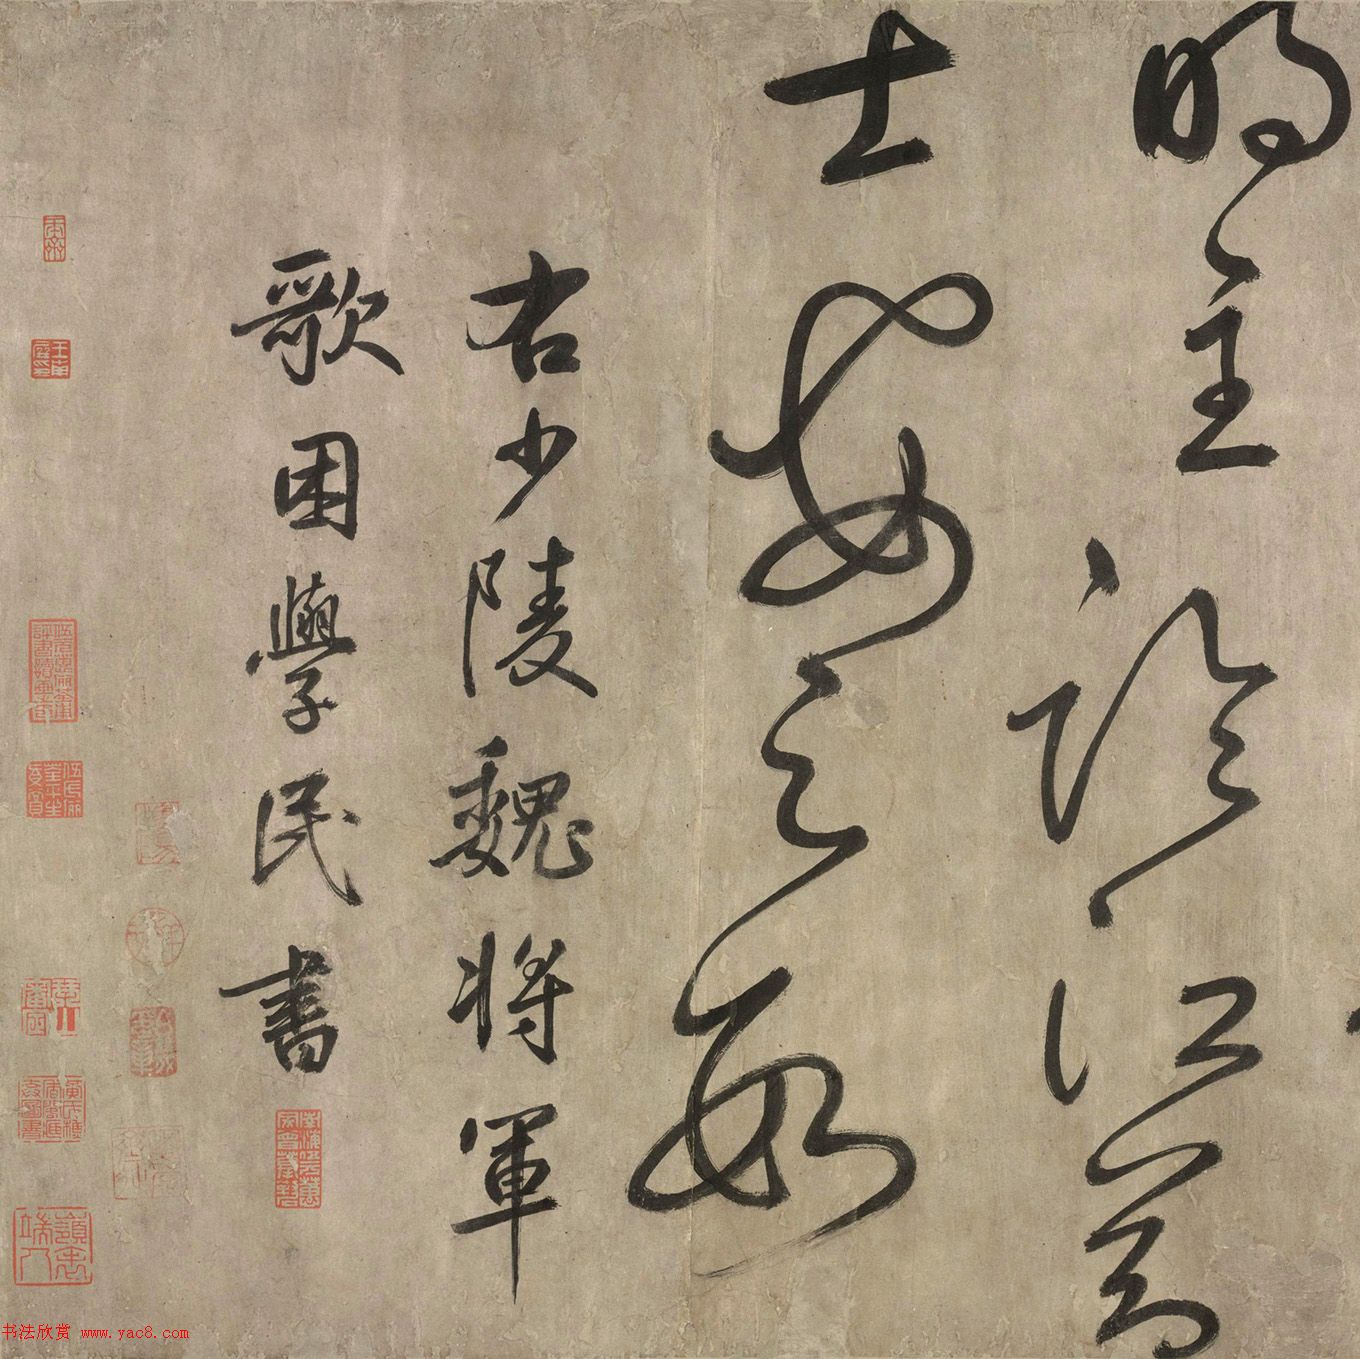 明主臨江節
士安足數
右少陵魏将軍
歌困學民書
书法欣赏 www.yac8.com